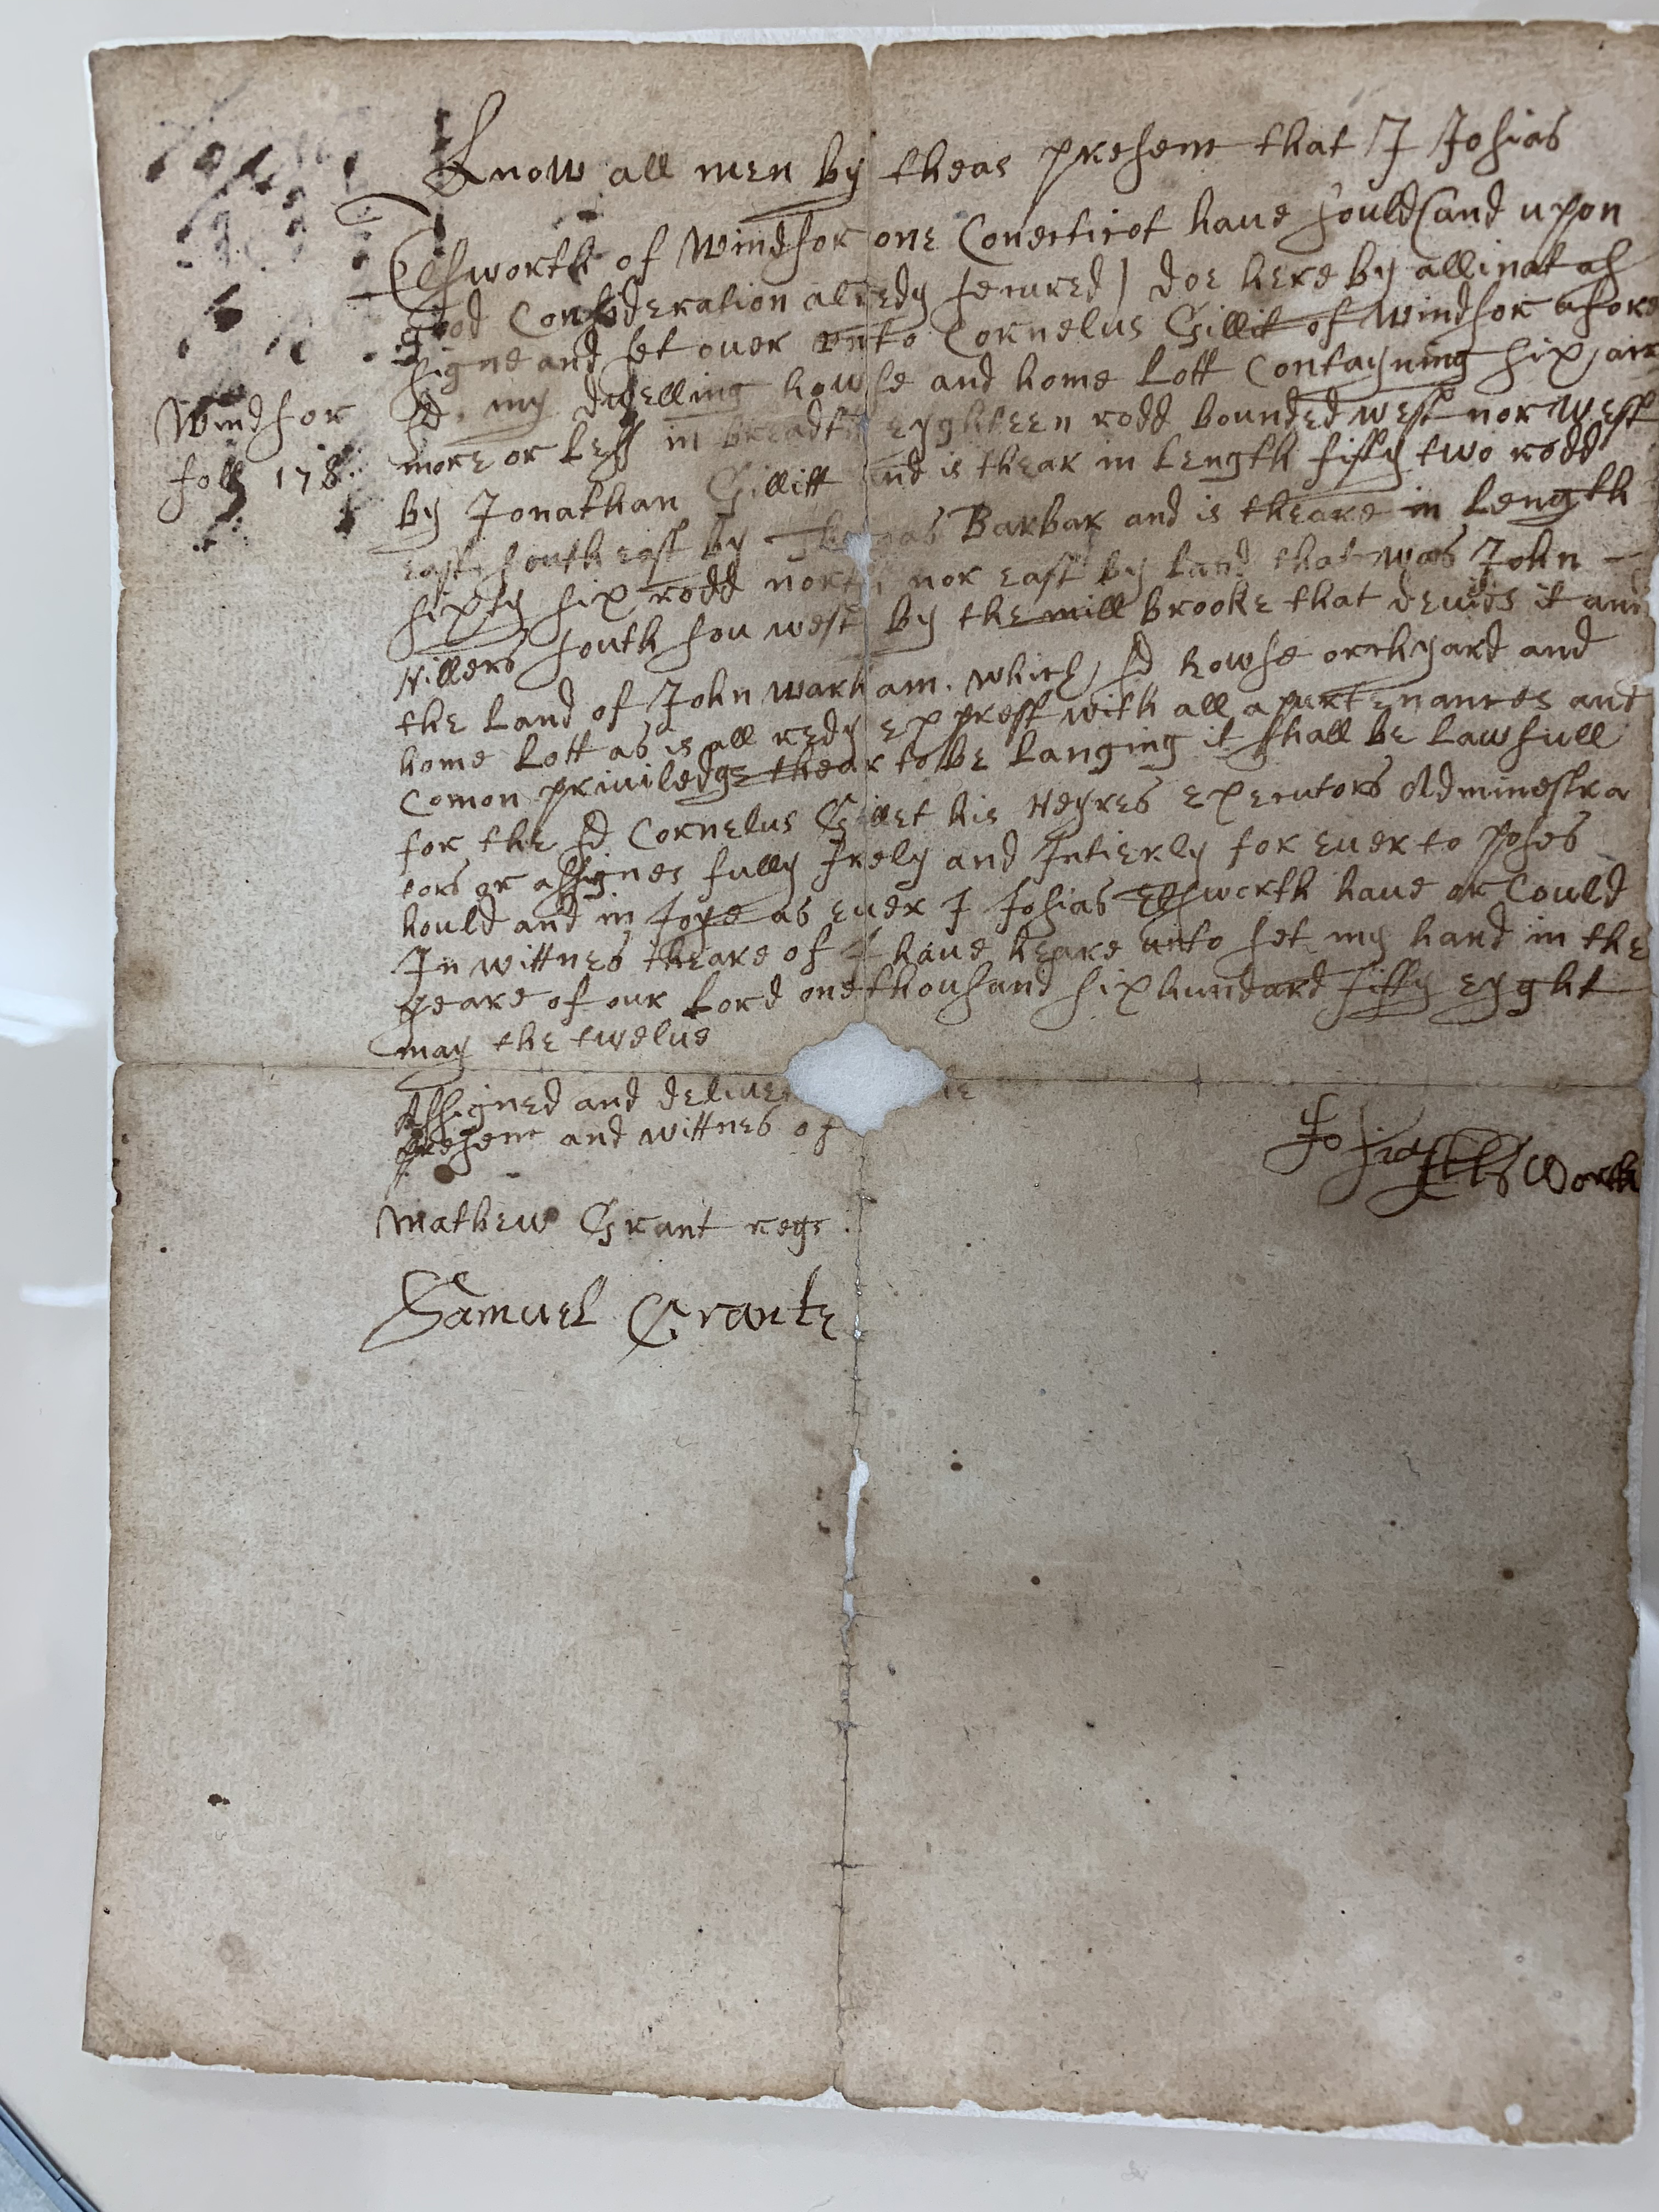 Know all men by theas present that I Josias
Elsworth of Windsor one Conecticot have sould (and upon
good Consideration alredy secured) doe here by allinat as
signe and set over unto Cornelus Gillit of Windsor afore
sd. my dwelling howse and home Lott Contayning six, air
Windsor
foll 178.
more or Less in breadth eyghteen rodd bounded west nor west
by Jonathan Gillitt and is thear in Length fifty two rodd
east south east by Thomas Barbar and is theare in Length
sixty six rodd north nor east by Land that was John
Hillers south sou west by the mill brooke that devids it and
the Land of John warham. which sd howse orchyard and
home Lott as is all redy exppresst with all apurtenances and
Comon priviledge thear to be Langing it shall be Lawfull
for the sd Cornelus Gillet his Heyres Executors Adminestra
tors or assignes fully frely and Intierly for ever to poses
hould and in Joye as ever I Josias Elsworth have or Could
In wittnes theare of I have heare unto set my hand in the
yeare of our Lord one thousand six hundard fifty eyght
may the twelve
Assigned and deliver
present and wittnes of
Josias Ells Worth
Mathew Grant regr.
Samuel Grante